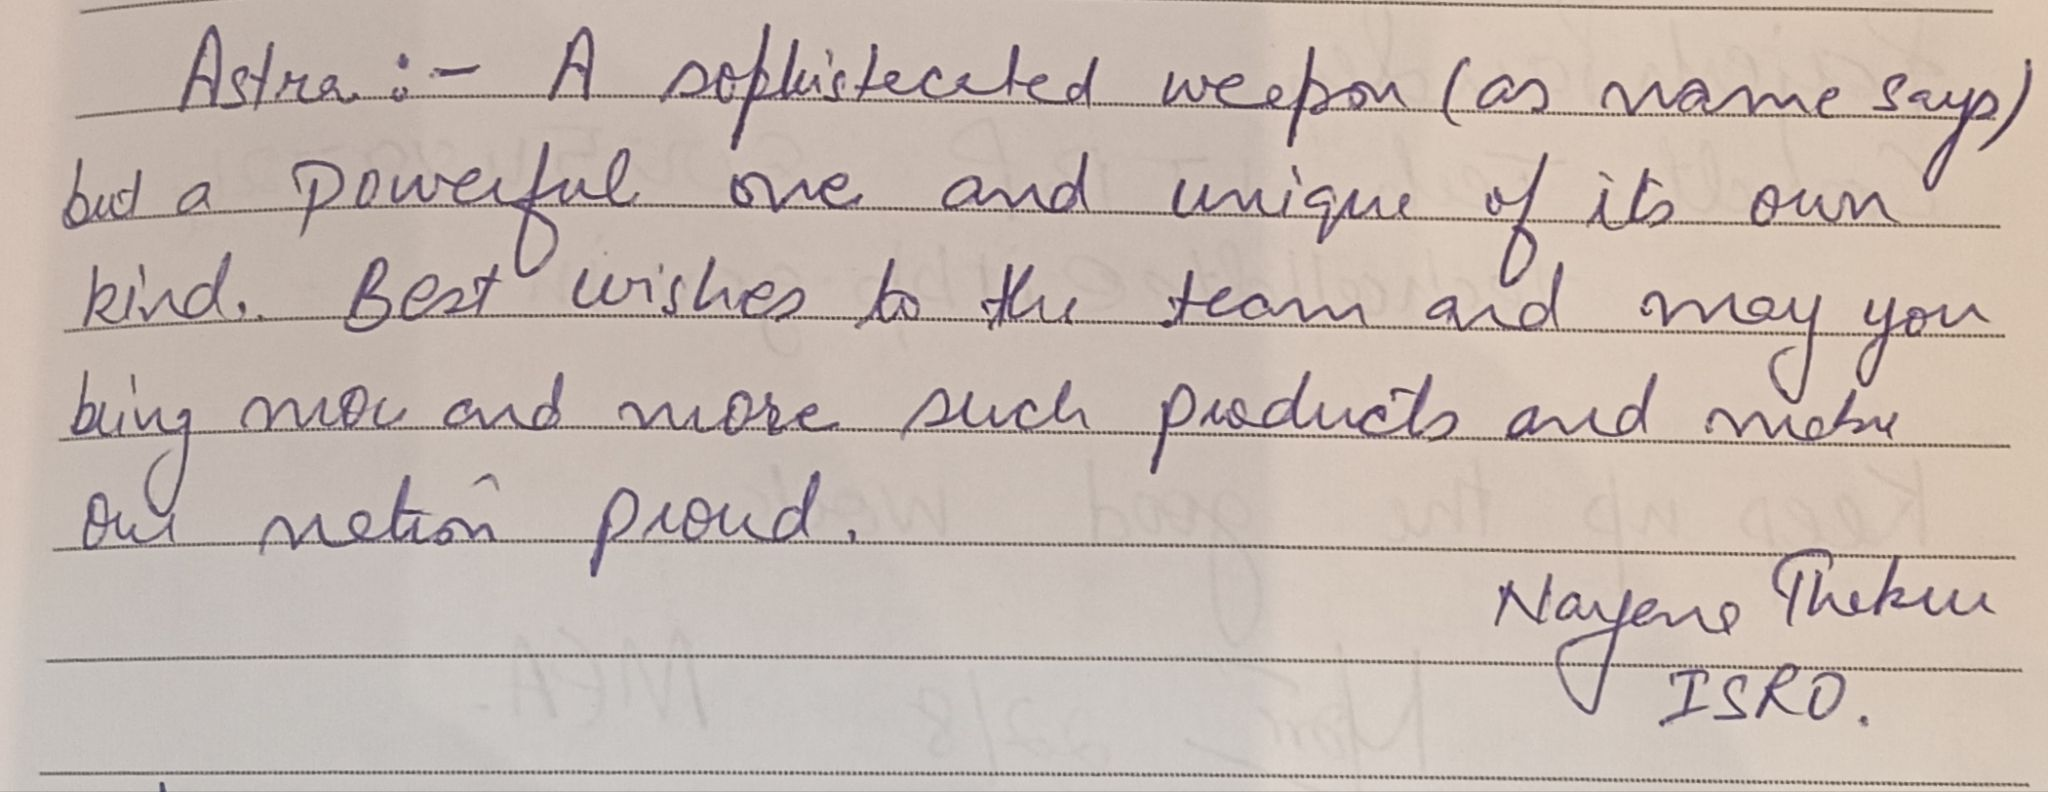 Astra :- A sophistecated weepon (as name says)
but a powerful one and unique of its own
kind. Best wishes to the team and may you
bring more and more such products and make
our nation proud.
Nayana Thakur
ISRO.